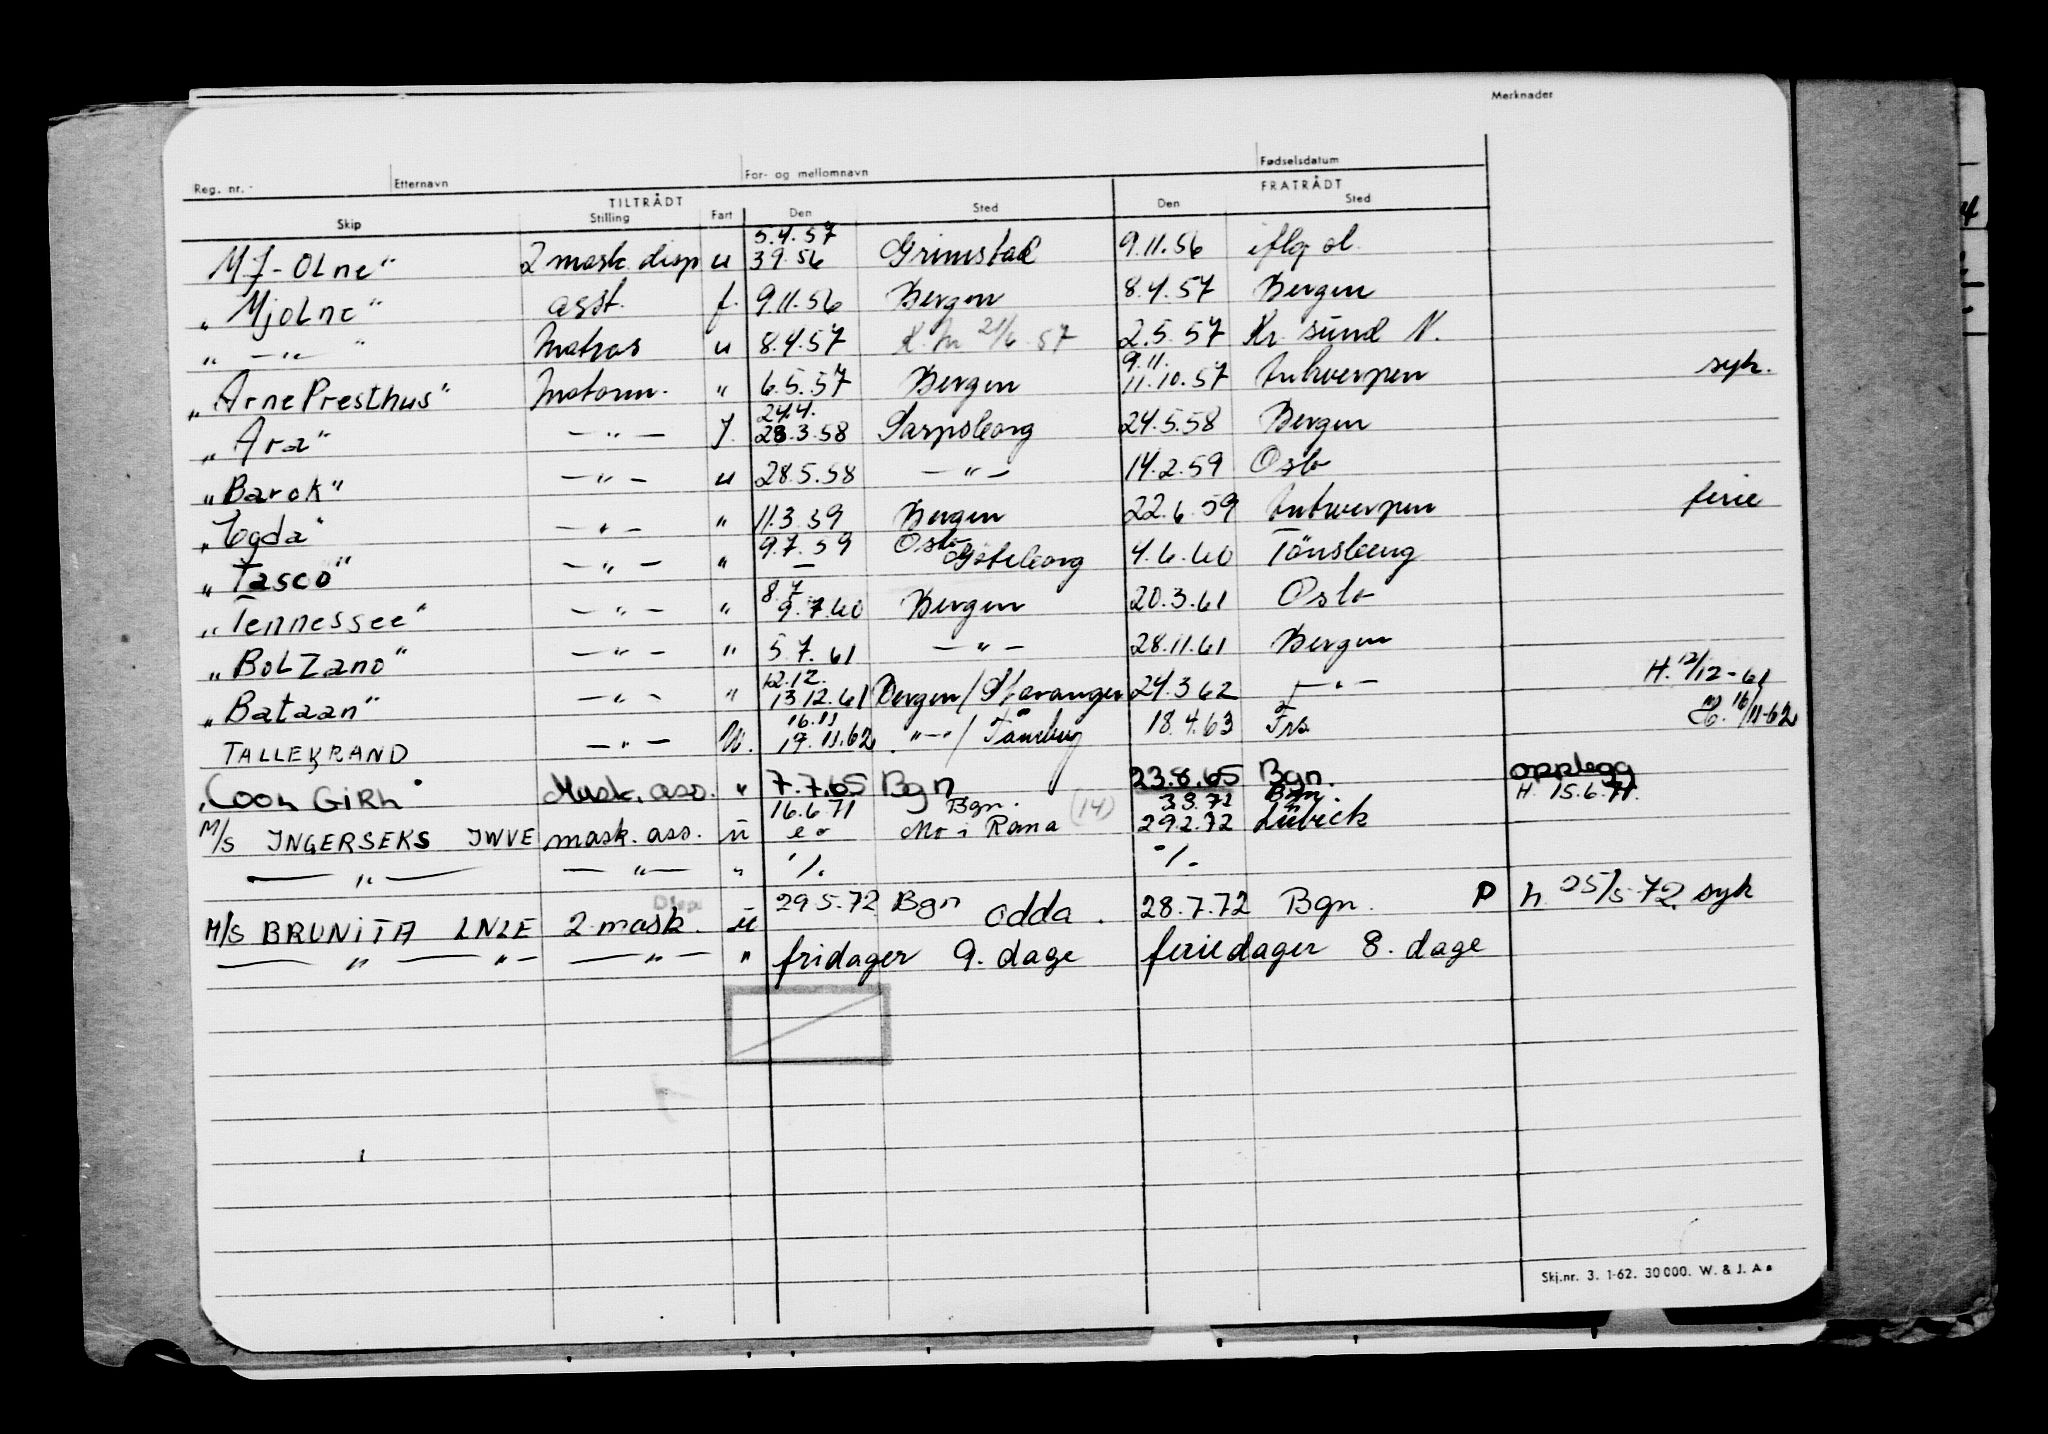 Merknader
Reg. nr. Etternavn For- og mellomnavn Fødselsdatum
TILTRÅDT FRATRÅDT
Skip Stilling Fart Den Sted Den Sted
5.4.57
MJ-OLne" 2 mask. disp u 3 9.56 Grimstad 9.11.56 iflg ol.
"Mjolne" asst. f. 9.11.56 Bergen 8.4.57 Bergen
" —"— " Matros u 8.4.57 21/6.57 2.5.57 Kr. sund N.
9.11.
"Arne Presthus" Motorm. " 6.5.57 Bergen 11.10.57 Antwerpen syk.
24.4.
"Ara" —"— f. 28.3.58 Sarpsborg 24.5.58 Bergen
"Barok" —"— u 28.5.58 —"— 14.2.59 Oslo
"Togda" —"— " 11.3.59 Bergen 22.6.59 Antwerpen ferie
"Tasco" —"— " 9.7.59 — Oslo Göteborg 4.6.60 Tönsberg
8.7
"Tennessee" —"— " 9.7.60 Bergen 20.3.61 Oslo
"BoLZano" —"— " 5.7.61 —"— 28.11.61 Bergen
12.12.
"Bataan" —"— " 13 12.61 Bergen / Stavanger 24.3 62 —"— H. 12/12-61
16.11
TALLEKRAND —"— U. 19.11.62 "—"/ Tönsberg 18.4.63 Frs. H. 16/11-62
"COOL GIRL" Mask. ass. " 7.7.65 Bgn 23.8.65 Bgn. opplegg
16.6.71 Bgn. (14) 3.3.72 Bgn. H. 15.6.71.
M/S INGERSEKS JWVE mask. ass. u e o Mo i Rana 29.2.72 Lübeck
—"— —"— " ·/. ·/.
Disp.
M/S BRUNITA LNLE 2 mask. u 29.5.72 Bgn Odda. 28.7.72 Bgn. P h. 25/5-72. syk
—"— "— —"— " fridager 9. dage feriedager 8. dage
Skj.nr. 3. 1-62. 30 000. W. & J. As